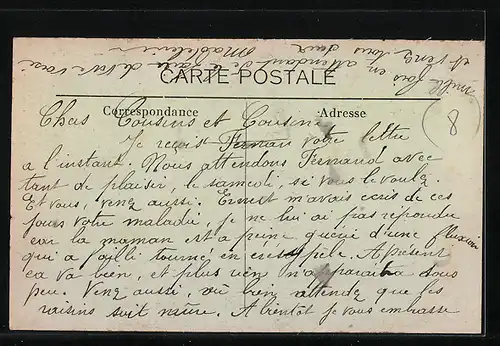 CARTE POSTALE
Correspondance
Adresse
8
Chers Cousins et Cousine
Je reçois Fernand votre lettre
a l'instant. Nous attendons Fernand avec
tant de plaisir, le samedi, si vous le voulez.
Et vous, venez aussi. Ernest m'avais ecris de ces
jours votre maladie, je ne lui ai pas repondu
car la maman est a peine guérie d'une fluxion
qui a failli tourner en érésipèle. A présent
ca va bien, et plus rien n'a paraitra sous
peu. Venez aussi, ou bien attendez que les
raisins soit mûre. A bientot je vous embrasse
mille fois en attendant de
et venez tous deux
Madeleine